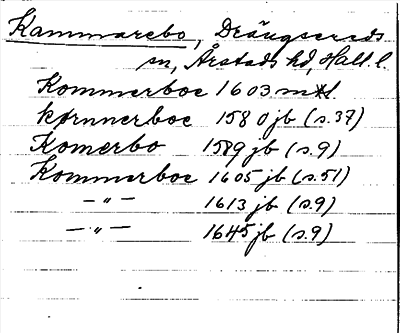 Kammarebo, Drängsereds
sn, Årstads hd, Hall. l.
Kommerboe 1603 mtl
kornnerboe 1580 jb (s. 37)
Komerbo 1589 jb (s. 9)
Kommerboe 1605 jb (s. 51)
— " — 1613 jb (s. 9)
— " — 1645 jb (s. 9)